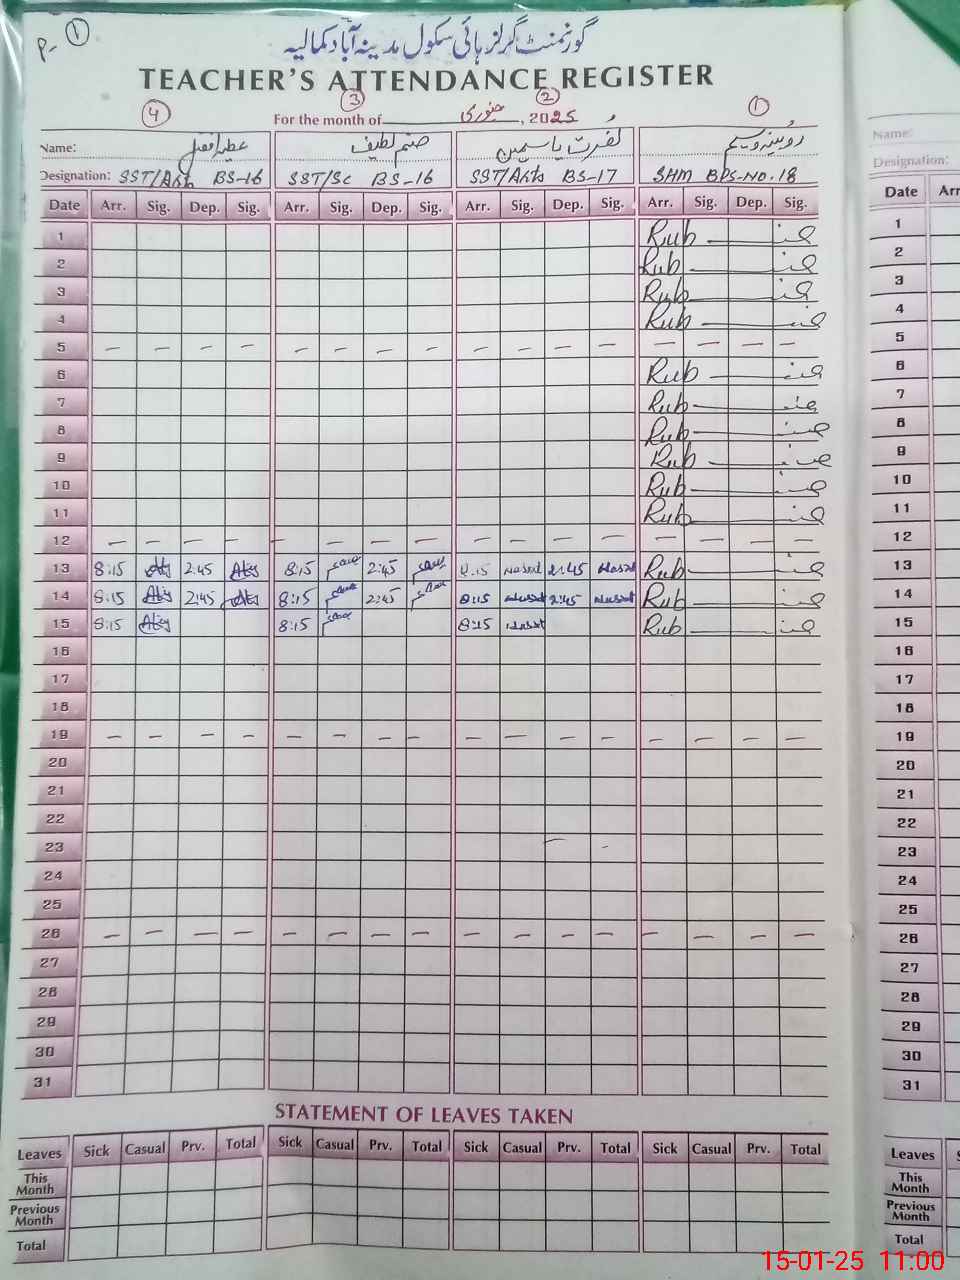 P-①
گورنمنٹ گرلز ہائی سکول مدینہ آباد کمالیہ
TEACHER'S ATTENDANCE REGISTER
④ ③ ② ①
For the month of جنوری, 2025
Name: صنم لطیف نصرت یاسمین روبینہ وسیم
Designation: SST/Arts BS-16 SST/Sc BS-16 SST/Arts BS-17 SHM BPS-NO.18
Date Arr. Sig. Dep. Sig. Arr. Sig. Dep. Sig. Arr. Sig. Dep. Sig. Arr. Sig. Dep. Sig.
1 Rub
2 Rub
3 Rub
4 Rub
5 — — — — — — — — — — — — — — — —
6 Rub
7 Rub
8 Rub
9 Rub
10 Rub
11 Rub
12 — — — — — — — — — — — — — — — —
13 8:15 2:45 8:15 2:45 8:15 Nusrat 2:45 Nusrat Rub
14 8:15 2:45 8:15 2:45 8:15 Nusrat 2:45 Nusrat Rub
15 8:15 8:15 8:15 Nusrat Rub
16
17
18
19 — — — — — — — — — — — — — — — —
20
21
22
23
24
25
26 — — — — — — — — — — — — — — — —
27
28
29
30
31
STATEMENT OF LEAVES TAKEN
Leaves Sick Casual Prv. Total Sick Casual Prv. Total Sick Casual Prv. Total Sick Casual Prv. Total
This Month
Previous Month
Total
Name:
Designation:
Date Arr
1
2
3
4
5
6
7
8
9
10
11
12
13
14
15
16
17
18
19
20
21
22
23
24
25
26
27
28
29
30
31
Leaves S
This Month
Previous Month
Total
15-01-25 11:00